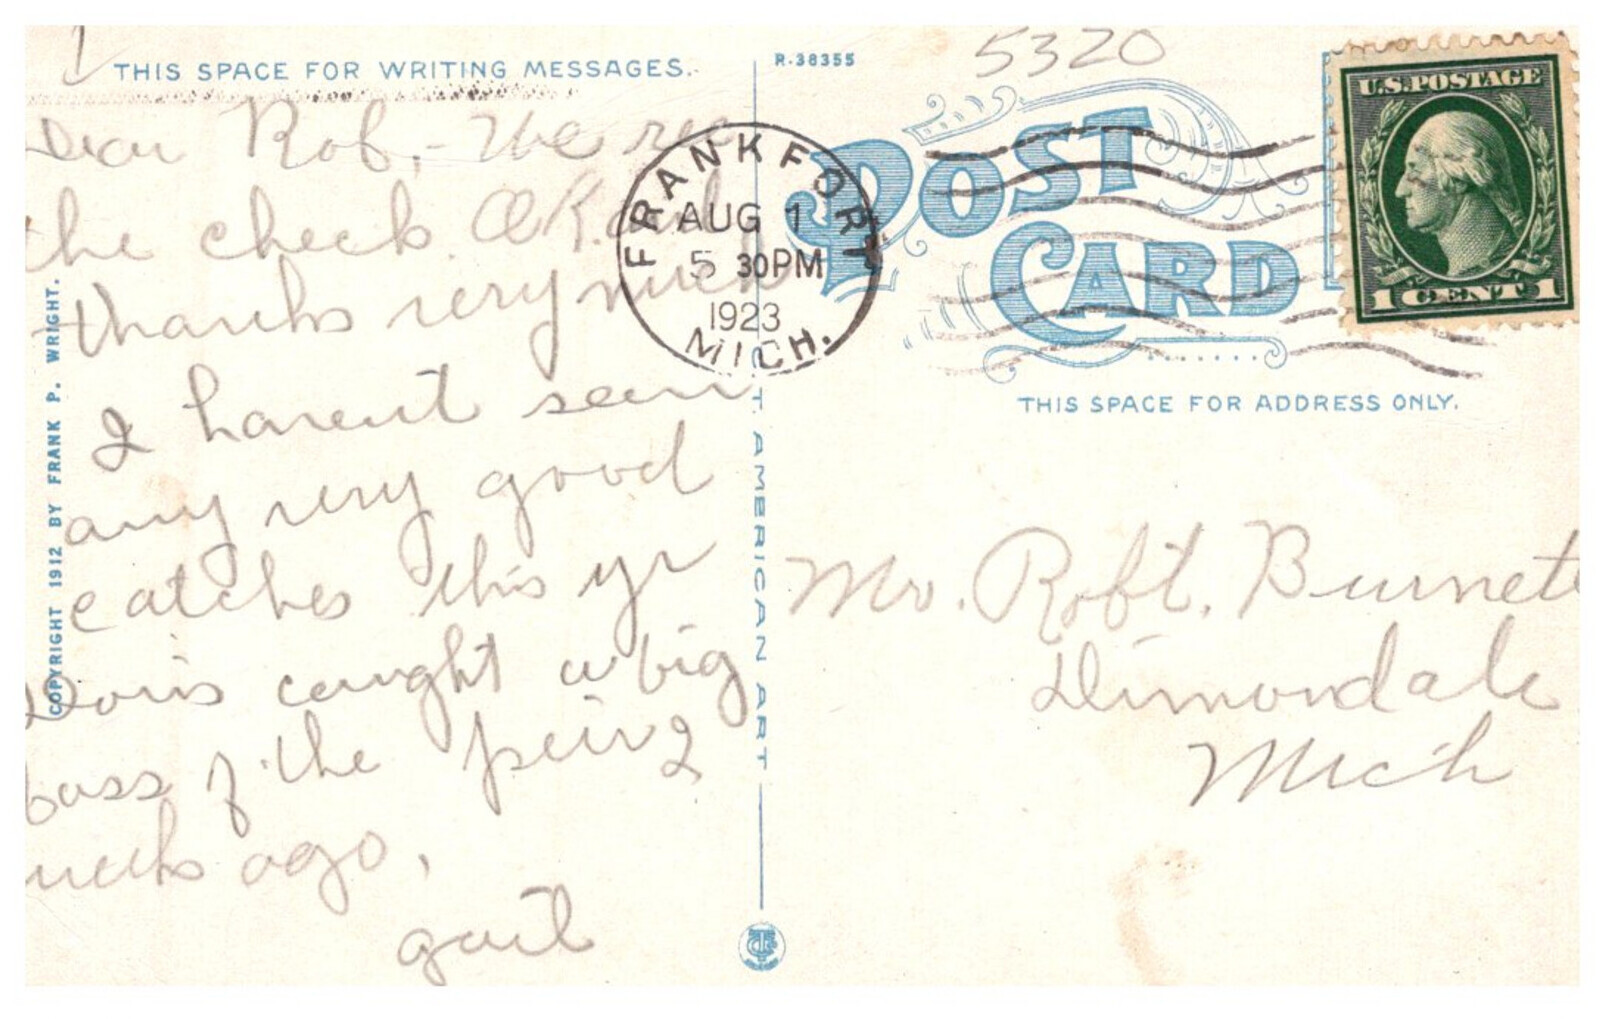 1
THIS SPACE FOR WRITING MESSAGES.
Dear Rob, - We rec
the check O.K. and
thanks very much
I havent seen
any very good
catches this yr
Doris caught a big
bass f. the pier 2
weeks ago,
COPYRIGHT 1912 BY FRANK P. WRIGHT.
C.T. AMERICAN ART
R-38355
5320
POST
CARD
FRANKFORT
AUG 1
5 30PM
1923
MICH.
U.S. POSTAGE
1 CENT 1
THIS SPACE FOR ADDRESS ONLY.
Mr. Robt. Burnett
Dimondale
Mich